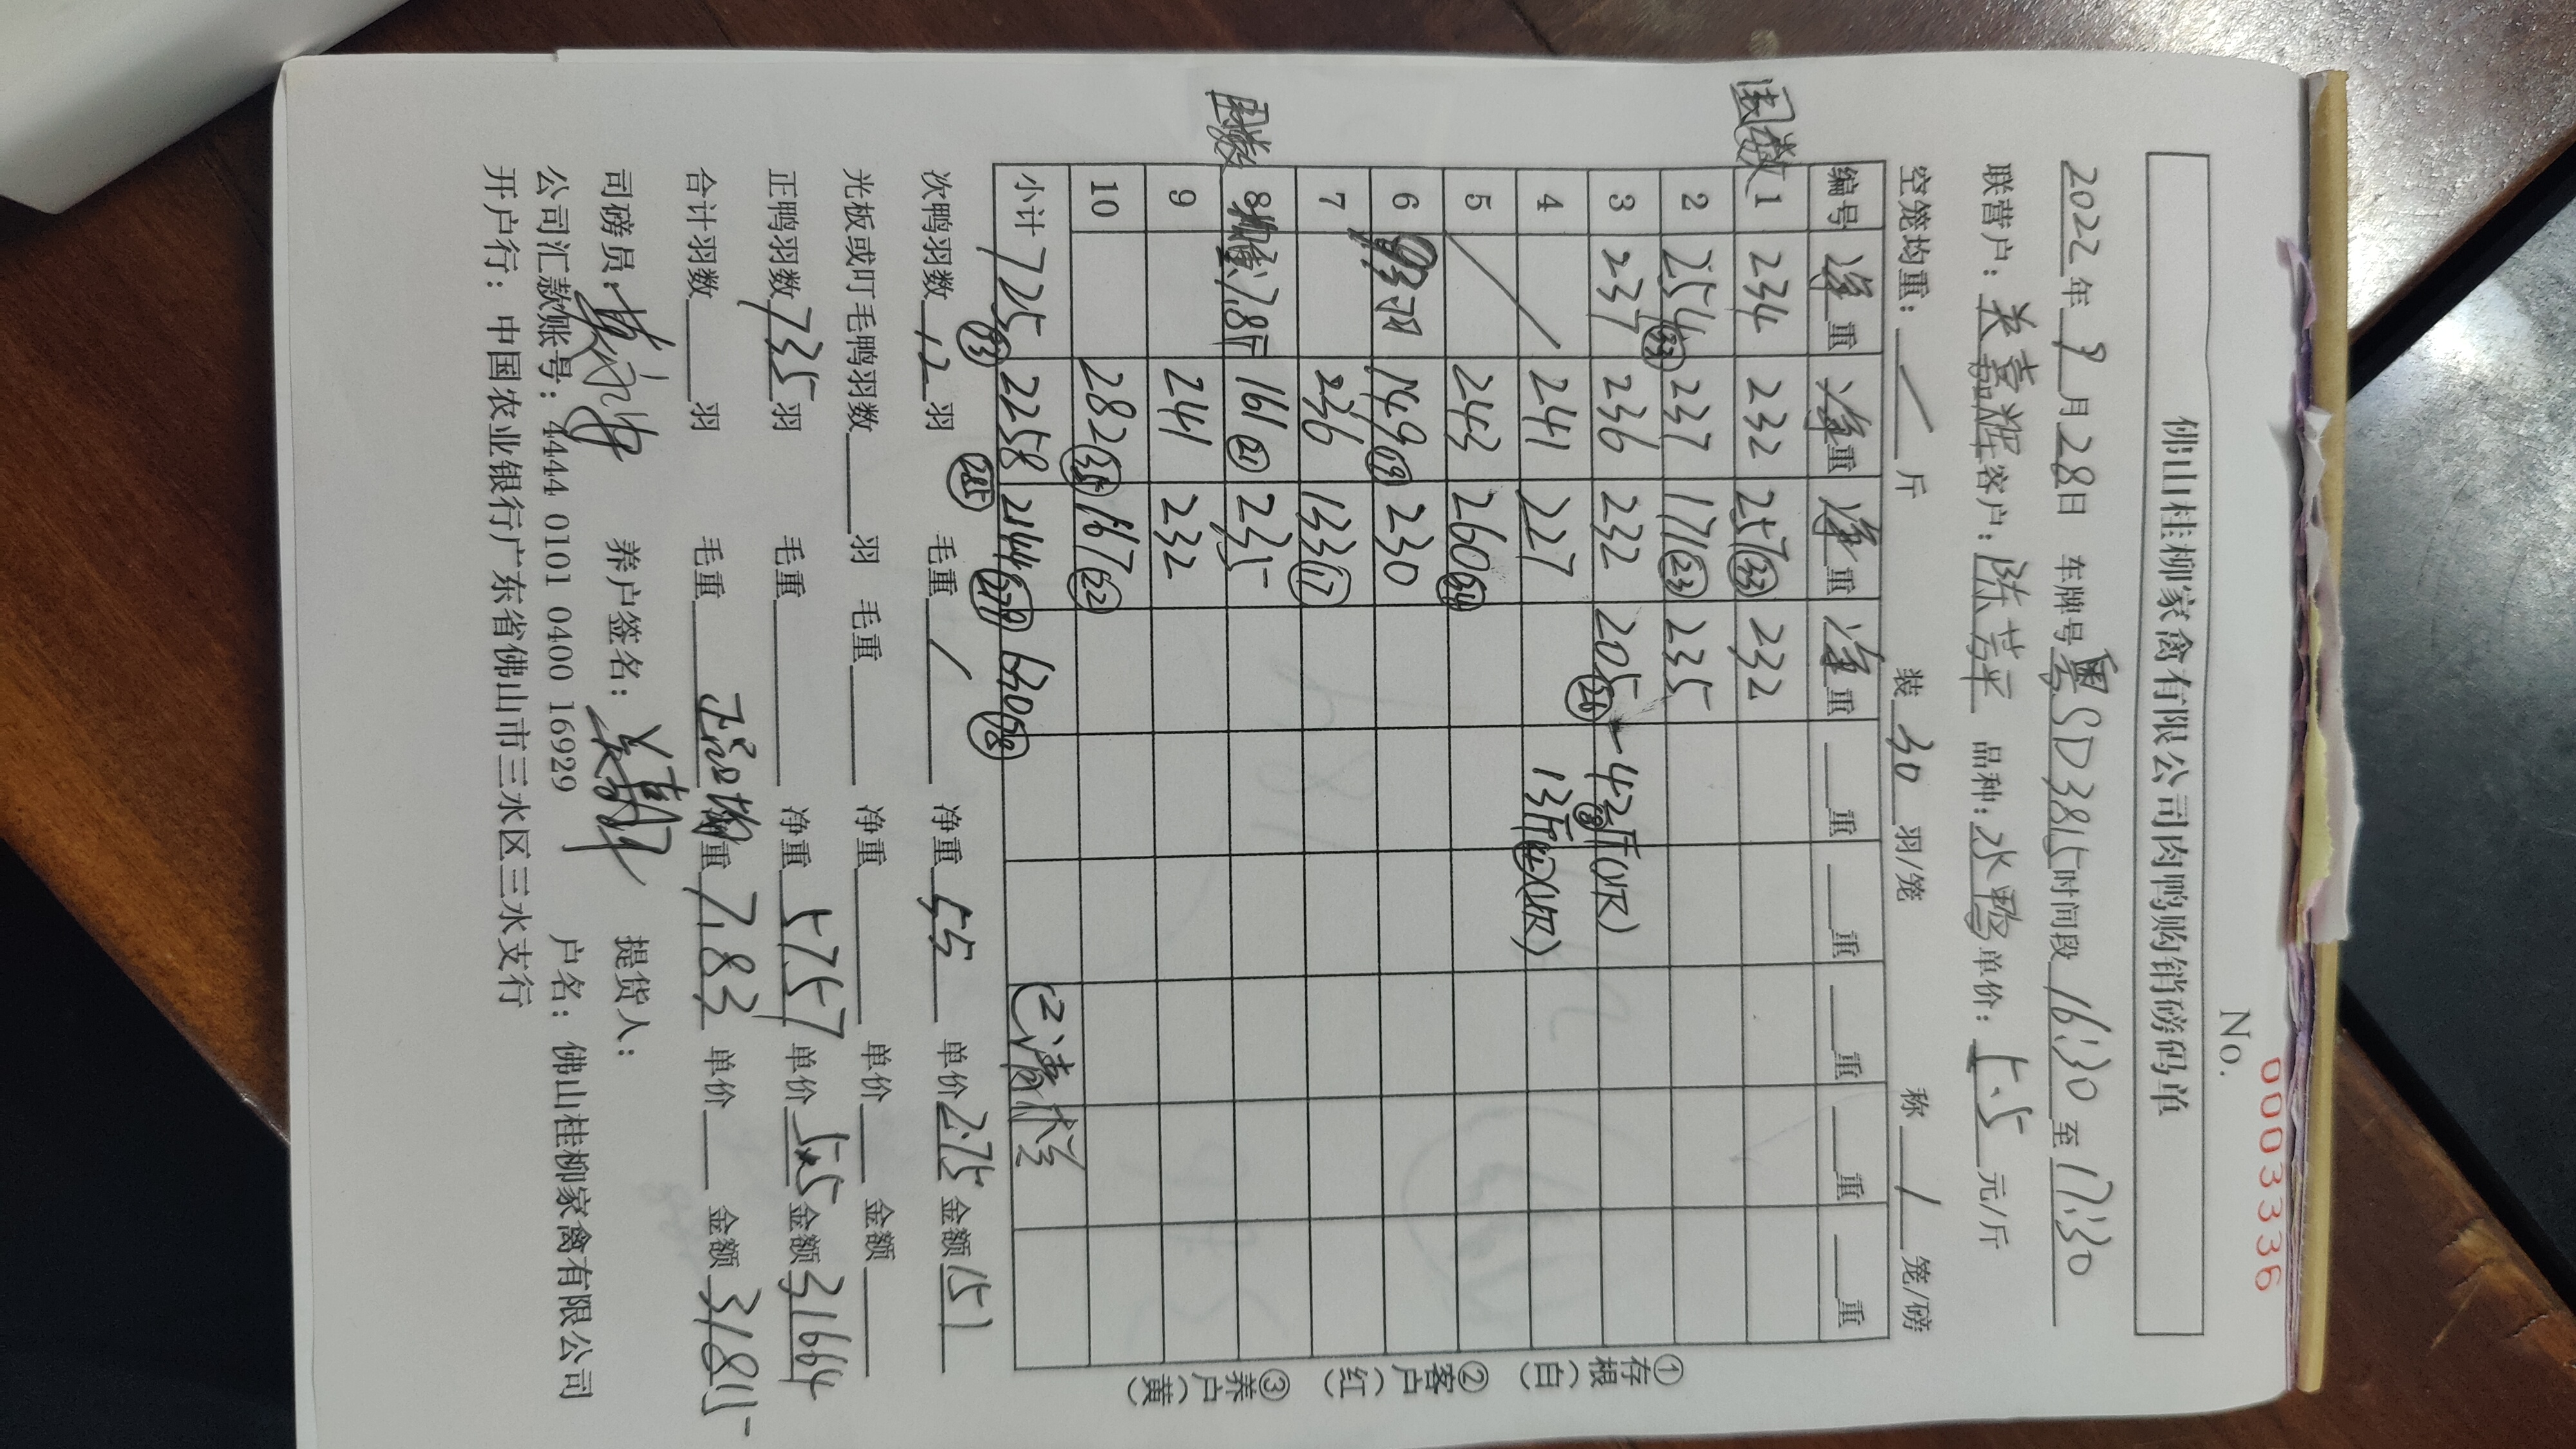 No. 0003336
佛山桂柳家禽有限公司肉鸭购销磅码单
2022年9月28日 车牌号粤SD3815时间段16:30至17:30
联营户：关嘉辉客户：陈芳平 品种：水鸭单价：5.5元/斤
空笼均重：/斤 装30羽/笼 称/笼/磅
编号 净重 净重 净重 净重 重 重 重 重 重
围数 1 234 232 257(33) 232
2 254(33) 237 171(23) 235
3 237 236 232 205(26) -42斤(8)
4 241 227 13斤(4)
5 243 260(34)
6 149(19) 230
7 236 133(17)
围数 8 均重7.8斤 161(21) 235
9 241 232
10 282(36) 167(22)
小计 725(93) 2258(285) 2144(279) 630(78) 已清栏
①存根（白） ②客户（红） ③养户（黄）
次鸭羽数12羽 毛重/ 净重55 单价2.75 金额151
光板或叮毛鸭羽数 羽 毛重 净重 单价 金额
正鸭羽数735羽 毛重 净重5757 单价5.5 金额31664
合计羽数 羽 毛重 均重7.83 单价 金额31815
司磅员： 养户签名： 提货人：
公司汇款账号：4444 0101 0400 16929 户名：佛山桂柳家禽有限公司
开户行：中国农业银行广东省佛山市三水区三水支行